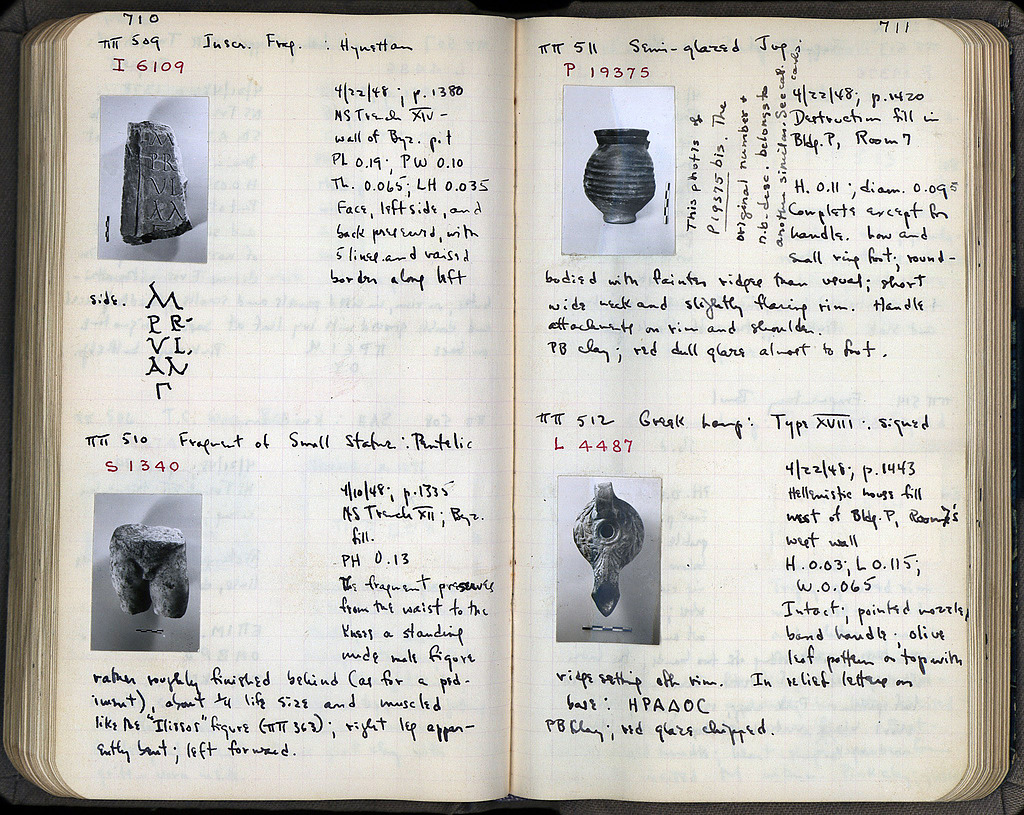 710
ΠΠ 509 Inscr. Frag. : Hymettian
I 6109
4/22/48 ; p. 1380
NS Trench XIV -
wall of Byz. pit
PL 0.19 ; PW 0.10
Th. 0.065 ; LH 0.035
Face, left side, and
back preserved, with
5 lines and raised
border along left
side.
Μ
PR-
VL
AN
Γ
ΠΠ 510 Fragment of Small Statue : Pentelic
S 1340
4/10/48 ; p. 1335
NS Trench XII ; Byz.
fill.
PH 0.13
The fragment preserves
from the waist to the
knees a standing
nude male figure
rather roughly finished behind (as for a ped-
iment), about 1/4 life size and muscled
like the "Ilissos" figure (ΠΠ 363) ; right leg appar-
ently bent ; left forward.
711
ΠΠ 511 Semi-glazed Jug.
P 19375
This photo is of
P 19375 bis. The
original number +
n.b. desc. belongs to
another similar. See cat.
cards
4/22/48 ; p. 1420
Destruction fill in
Bldg. P, Room 7
H. 0.11 ; diam. 0.095
Complete except for
handle. Low and
small ring foot ; round-
bodied with fainter ridges than usual ; short
wide neck and slightly flaring rim. Handle
attachments on rim and shoulder.
PB clay ; red dull glaze almost to foot.
ΠΠ 512 Greek Lamp : Type XVIII : signed
L 4487
4/22/48 ; p. 1443
Hellenistic house fill
west of Bldg. P, Room 7's
west wall
H. 0.03 ; L 0.115 ;
W. 0.065
Intact ; pointed nozzle,
band handle ; olive
leaf pattern on top with
ridge setting off rim. In relief letters on
base : ΗΡΑΔΟC
PB Clay ; red glaze chipped.